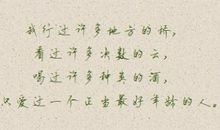 我行过许多地方的桥，
看过许多次数的云，
喝过许多种类的酒，
只爱过一个正当最好年龄的人。